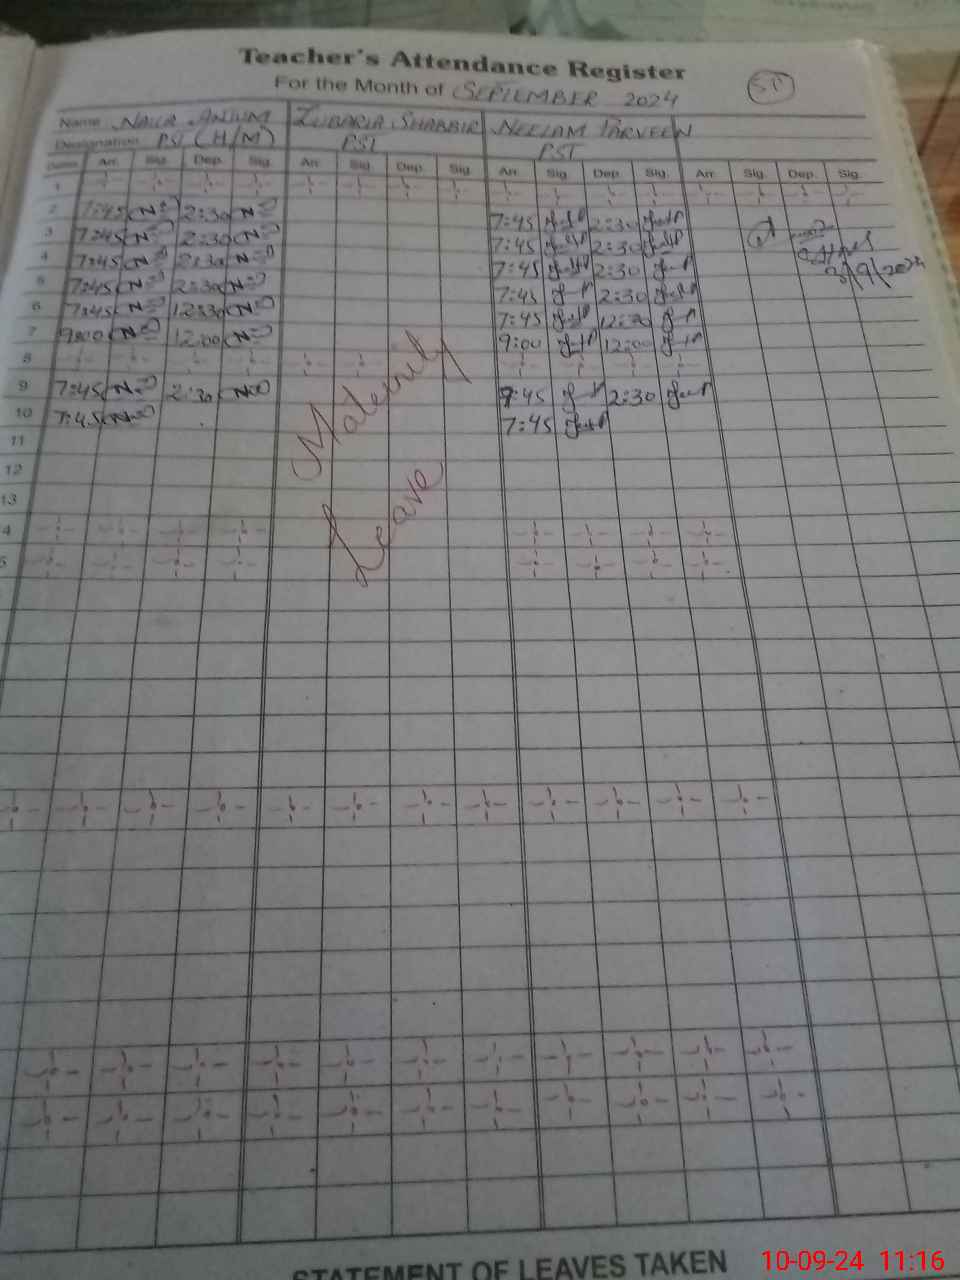 Teacher's Attendance Register
For the Month of SEPTEMBER 2024
ST
Name NAILA ANJUM ZUBARIA SHABBIR NEELAM PARVEEN
Designation PST (H/M) PST PST
Dates Arr. Sig. Dep. Sig. Arr. Sig. Dep. Sig. Arr. Sig. Dep. Sig. Arr. Sig. Dep. Sig.
1
2 7:45 2:30 7:45 2:30
3 7:45 2:30 7:45 2:30
4 7:45 2:30 7:45 2:30
3/9/2024
5 7:45 2:30 7:45 2:30
6 7:45 12:30 7:45 12:30
7 9:00 12:00 9:00 12:00
8
9 7:45 2:30 7:45 2:30
10 7:45 7:45
11
12
13
4
5
Maternity
Leave
STATEMENT OF LEAVES TAKEN
10-09-24 11:16